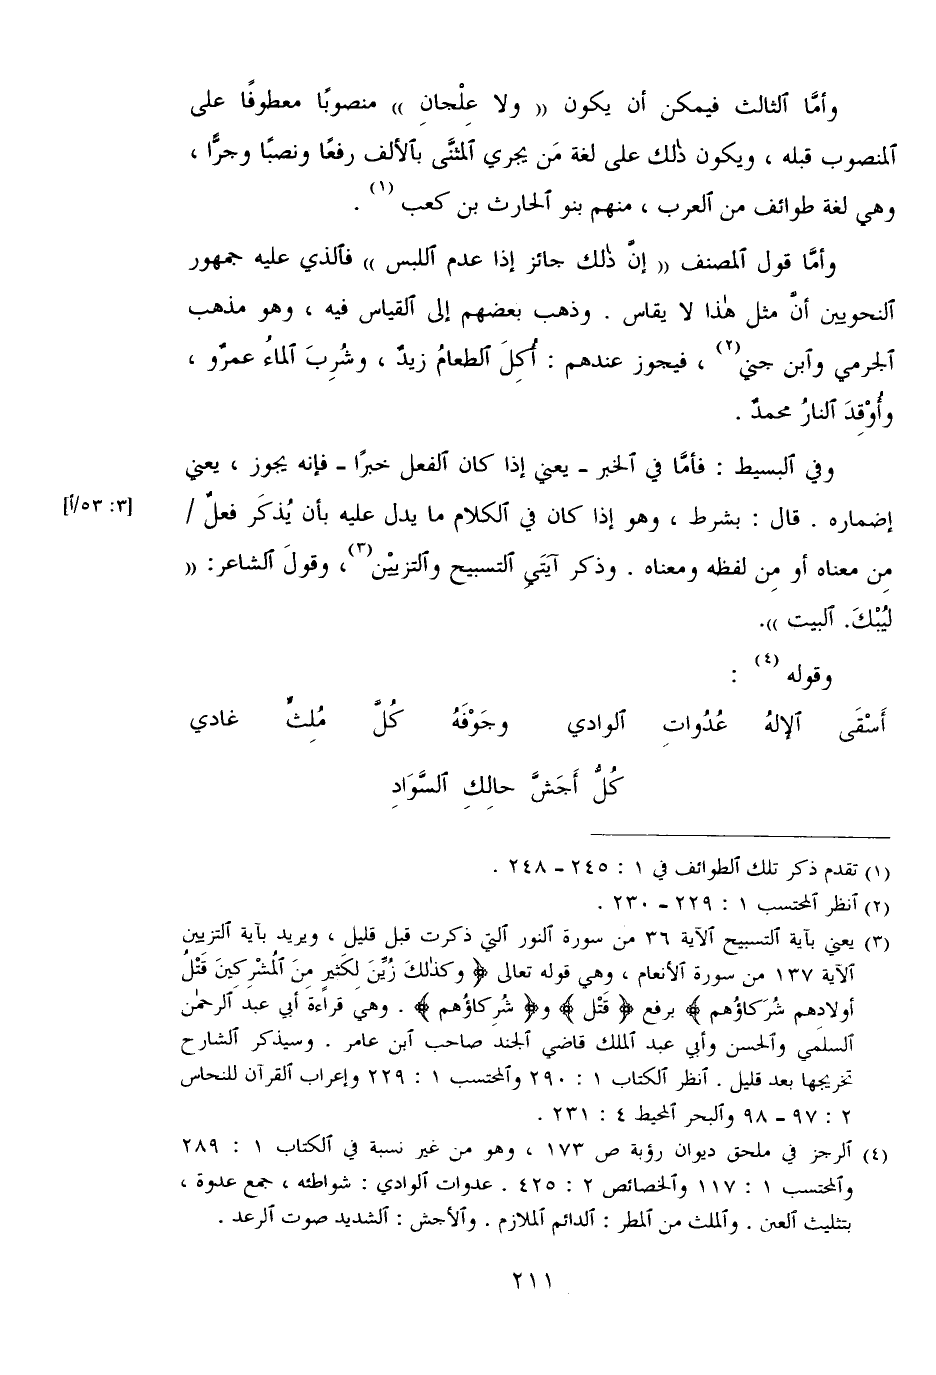 وأمَّا ٱلثالث فيمكن أن يكون « ولا عِلْجانِ » منصوبًا معطوفًا على
ٱلمنصوب قبله ، ويكون ذٰلك على لغة مَن يجري ٱلمثنَّى بٱلألف رفعًا ونصبًا وجرًّا ،
وهي لغة طوائف من ٱلعرب ، منهم بنو ٱلحارث بن كعب (١) .
وأمَّا قول ٱلمصنف « إنَّ ذٰلك جائز إذا عدم ٱللبس » فٱلذي عليه جمهور
ٱلنحويين أنَّ مثل هٰذا لا يقاس . وذهب بعضهم إلى ٱلقياس فيه ، وهو مذهب
ٱلجرمي وٱبن جني(٢) ، فيجوز عندهم : أُكِلَ ٱلطعامُ زيدٌ ، وشُرِبَ ٱلماءُ عمرٌو ،
وأُوْقِدَ ٱلنارُ محمدٌ .
وفي ٱلبسيط : فأمَّا في ٱلخبر ـ يعني إذا كان ٱلفعل خبرًا ـ فإنه يجوز ، يعني
إضماره . قال : بشرط ، وهو إذا كان في ٱلكلام ما يدل عليه بأن يُذكَر فعلٌ / [٣: ٥٣/أ]
مِن معناه أو مِن لفظه ومعناه . وذكر آيَتَيِ ٱلتسبيح وٱلتزيِيْن(٣)، وقولَ ٱلشاعر: «
لِيُبْكَ. ٱلبيت ».
وقوله (٤) :
أَسْقَى ٱلإلهُ عُدُواتِ ٱلوادي وجَوْفَهُ كُلَّ مُلِثٌّ غادي
كُلُّ أَجَشَّ حالِكِ ٱلسَّوَادِ
(١) تقدم ذكر تلك ٱلطوائف في ١ : ٢٤٥ ـ ٢٤٨ .
(٢) ٱنظر ٱلمحتسب ١ : ٢٢٩ ـ ٢٣٠ .
(٣) يعني بآية ٱلتسبيح ٱلآية ٣٦ من سورة ٱلنور ٱلتي ذكرت قبل قليل ، ويريد بآية ٱلتزيين
ٱلآية ١٣٧ من سورة ٱلأنعام ، وهي قوله تعالى ﴿ وكذٰلكَ زُيِّنَ لِكثيرٍ مِنَ ٱلمُشْرِكينَ قَتْلُ
أولادِهم شُرَكاؤُهم ﴾ برفع ﴿ قَتْل ﴾ و﴿ شُركاؤُهم ﴾ . وهي قراءة أبي عبد ٱلرحمٰن
ٱلسلمي وٱلحسن وأبي عبد ٱلملك قاضي ٱلجند صاحب ٱبن عامر . وسيذكر ٱلشارح
تخريجها بعد قليل . ٱنظر ٱلكتاب ١ : ٢٩٠ وٱلمحتسب ١ : ٢٢٩ وإعراب ٱلقرآن للنحاس
٢ : ٩٧ ـ ٩٨ وٱلبحر ٱلمحيط ٤ : ٢٣١ .
(٤) ٱلرجز في ملحق ديوان رؤبة ص ١٧٣ ، وهو من غير نسبة في ٱلكتاب ١ : ٢٨٩
وٱلمحتسب ١ : ١١٧ وٱلخصائص ٢ : ٤٢٥ . عدوات ٱلوادي : شواطئه ، جمع عدوة ،
بتثليث ٱلعين . وٱلملث من ٱلمطر : ٱلدائم ٱلملازم . وٱلأجش : ٱلشديد صوت ٱلرعد .
٢١١